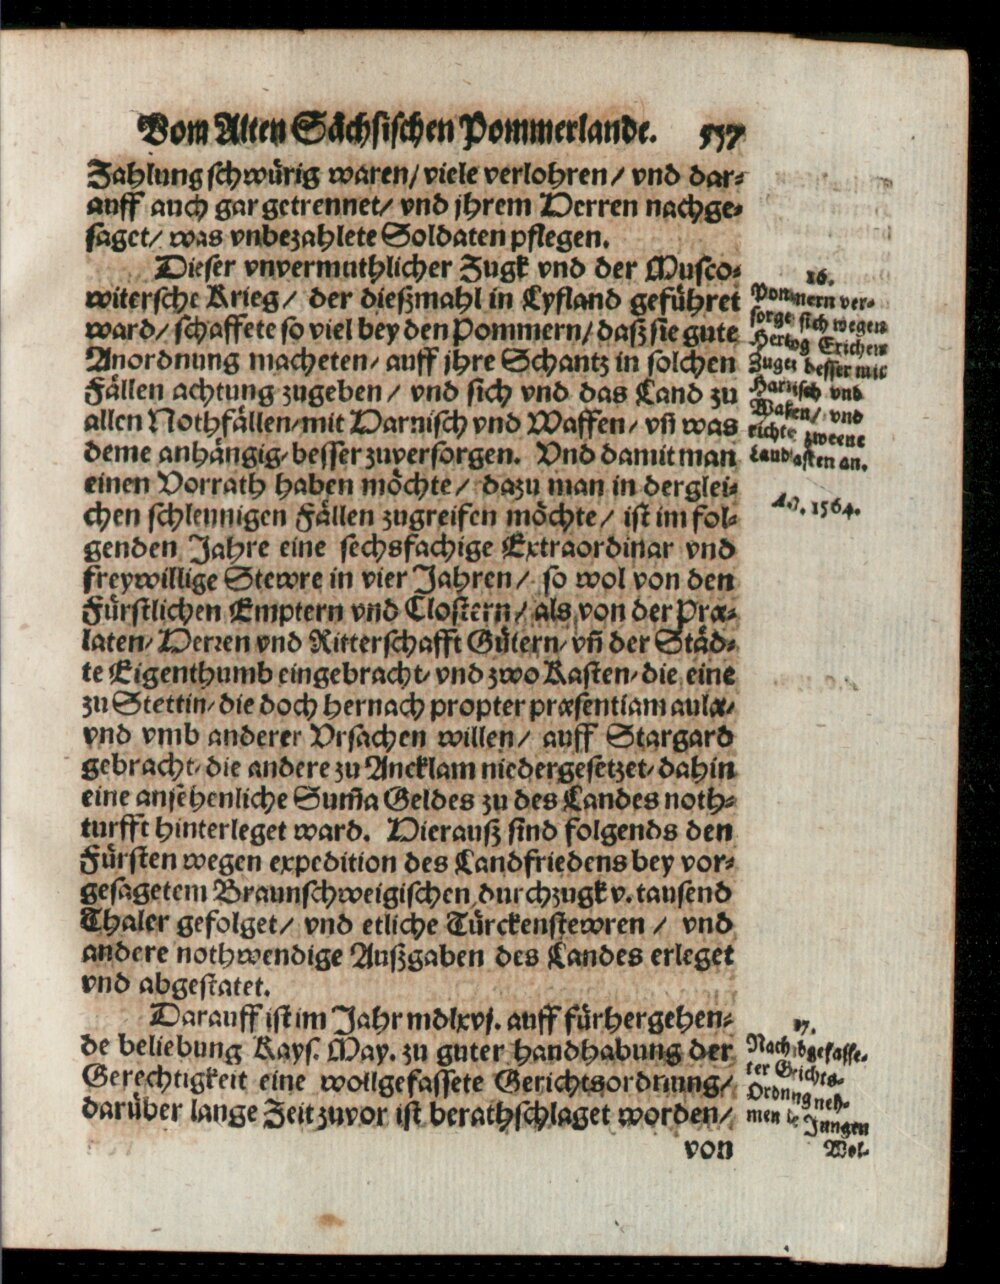 Vom Alten Sächsischen Pommerlande. 557
Zahlung schwürig waren/ viele verlohren/ vnd dar-
auff auch gar getrennet/ vnd jhrem Herren nachge-
saget/ was vnbezahlete Soldaten pflegen.
Dieser vnvermuthlicher Zugk vnd der Musco-
witersche Krieg/ der dießmahl in Lyfland geführet
ward/ schaffete so viel bey den Pommern/ daß sie gute
Anordnung macheten/ auff jhre Schantz in solchen
Fällen achtung zugeben/ vnd sich vnd das Land zu
allen Nothfällen/ mit Harnisch vnd Waffen/ vñ was
deme anhängig/ besser zuversorgen. Vnd damit man
einen Vorrath haben möchte/ dazu man in derglei-
chen schleunigen Fällen zugreifen möchte/ ist im fol-
genden Jahre eine sechsfachige Extraordinar vnd
freywillige Stewre in vier Jahren/ so wol von den
Fürstlichen Emptern vnd Clostern/ als von der Præ-
laten/ Herren vnd Ritterschafft Gütern/ vñ der Städ-
te Eigenthumb eingebracht/ vnd zwo Kasten/ die eine
zu Stettin/ die doch hernach propter præsentiam aulæ/
vnd vmb anderer Vrsachen willen/ auff Stargard
gebracht/ die andere zu Ancklam niedergesetzet/ dahin
eine ansehenliche Sum̃a Geldes zu des Landes noth-
turfft hinterleget ward. Hierauß sind folgends den
Fürsten wegen expedition des Landfriedens bey vor-
gesagetem Braunschweigischen durchzugk v. tausend
Thaler gefolget/ vnd etliche Türckenstewren/ vnd
andere nothwendige Außgaben des Landes erleget
vnd abgestatet.
Darauff ist im Jahr mdlxvj. auff fürhergehen-
de beliebung Kays. May. zu guter handhabung der
Gerechtigkeit eine wollgefassete Gerichtsordnung/
darüber lange Zeit zuvor ist berathschlaget worden/
von
16.
Pommern ver-
sorge sich wegen
Hertzog Erichen
Zuges besser mit
Harnisch vnd
Wafen/ vnd
richte zweene
Landkasten an.
A.. 1564.
17.
Nach abgefasse-
ter Gerichts-
Ordnung neh-
men die Jungen
Wol-